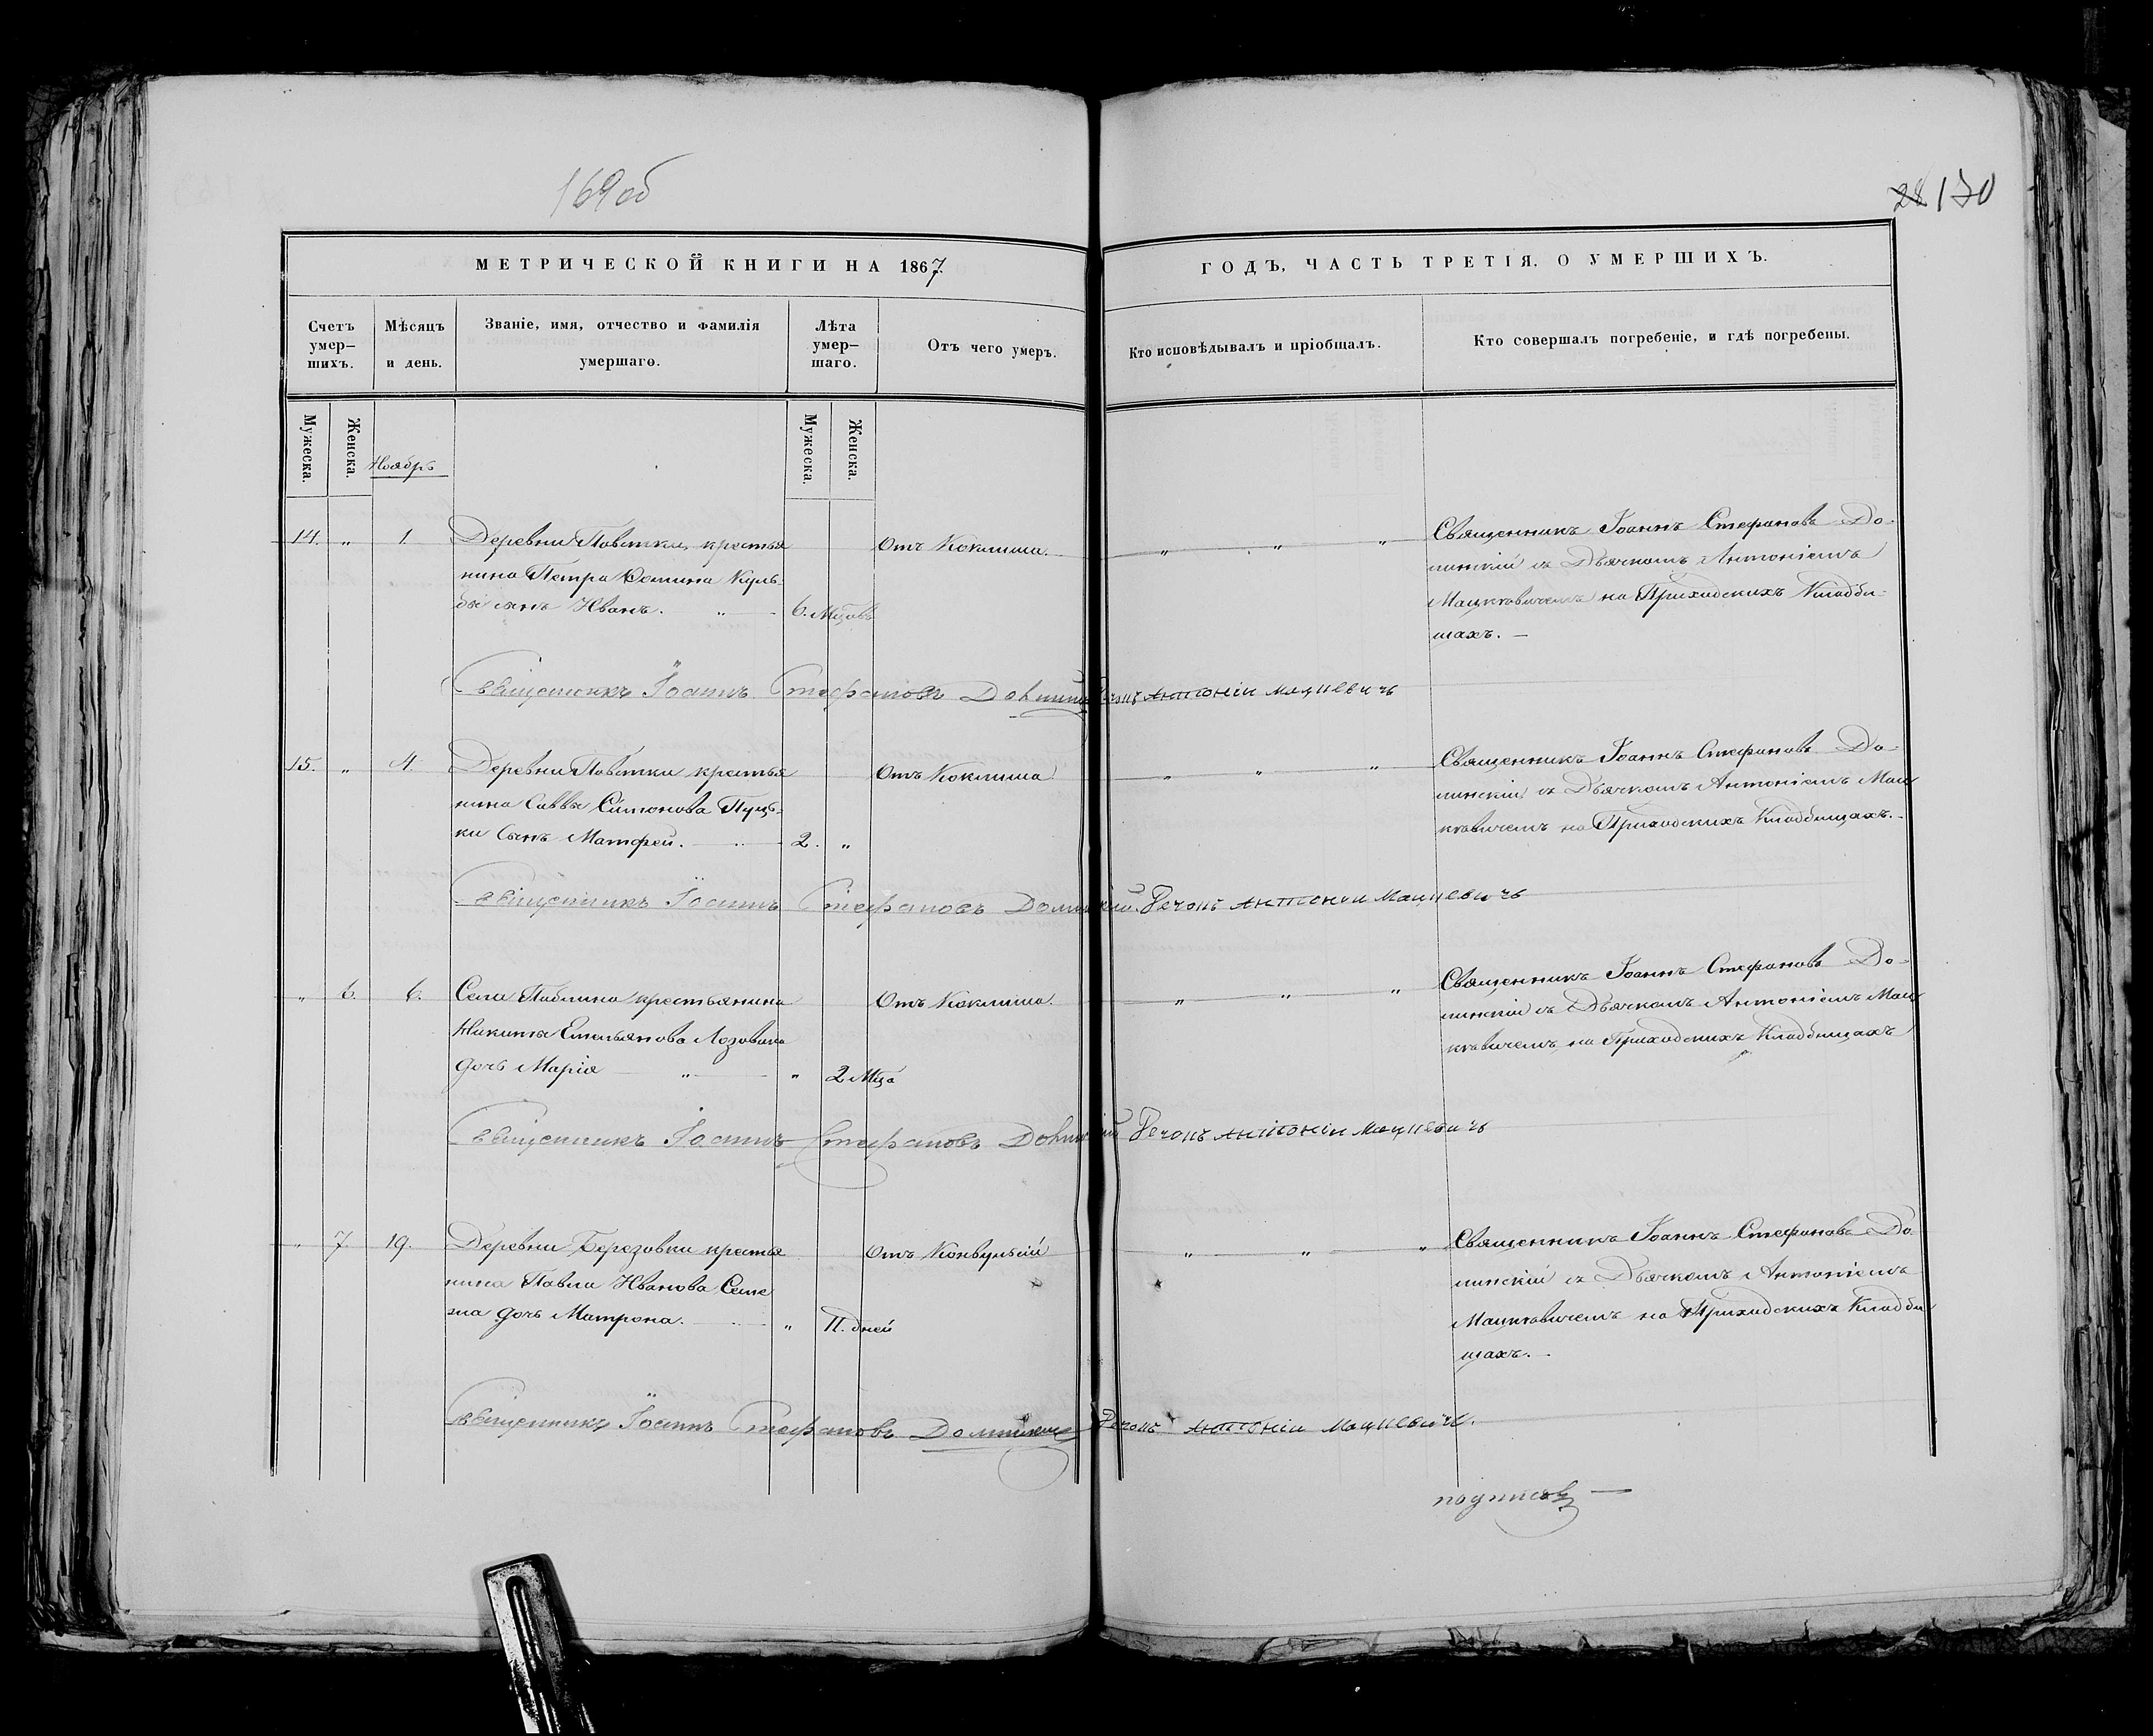 169об
28 170
МЕТРИЧЕСКОЙ КНИГИ НА 1867
ГОДЪ, ЧАСТЬ ТРЕТІЯ, О УМЕРШИХЪ.
Счетъ умер-шихъ.
Мѣсяцъ и день.
Званіе, имя, отчество и фамилія умершаго.
Лѣта умер-шаго.
Отъ чего умеръ.
Кто исповѣдывалъ и пріобщалъ.
Кто совершалъ погребеніе, и гдѣ погребены.
Мужеска.
Женска.
Ноябрь
Мужеска.
Женска.
14. „ 1. Деревни Повстки, крестья
нина Петра Фомина Куль-
бы сынъ Иванъ. „ 6. Мцовъ
Отъ Коклюша.
„ „ „
Священникъ Іоаннъ Стефановъ До-
линскій съ Дьячкомъ Антоніемъ
Мацкевичемъ на Приходскихъ Кладби-
щахъ. —
Священникъ Іоаннъ Стефановъ Долинскій Антоній Мацкевичъ
15. „ 4. Деревни Повстки крестья
нина Саввы Симонова Пуць-
ки Сынъ Матфей. 2. „
Отъ Коклюша
„ „ „
Священникъ Іоаннъ Стефановъ До-
линскій съ Дьячкомъ Антоніемъ Мац
кевичемъ на Приходскихъ Кладбищахъ.-
Священникъ Іоаннъ Стефановъ Долинскій Антоній Мацкевичъ
„ 6. 6. Села Паблина крестьянина
Никиты Емельянова Лозовика
дочь Марія „ „ 2 Мца
Отъ Коклюша.
„ „ „
Священникъ Іоаннъ Стефановъ До-
линскій съ Дьячкомъ Антоніемъ Мац
кевичемъ на Приходскихъ Кладбищахъ
Священникъ Іоаннъ Стефановъ Долинскій Антоній Мацкевичъ
„ 7 19. Деревни Березовки крестья
нина Павла Иванова Семе
дочь Матрона. „ 11. дней
Отъ Конвульсій
„ „ „
Священникъ Іоаннъ Стефановъ До
линскій съ Дьячкомъ Антоніемъ
Мацкевичемъ на Приходскихъ Кладби
щахъ. -
Священникъ Іоаннъ Стефановъ Долинскій Антоній Мацкевичъ.